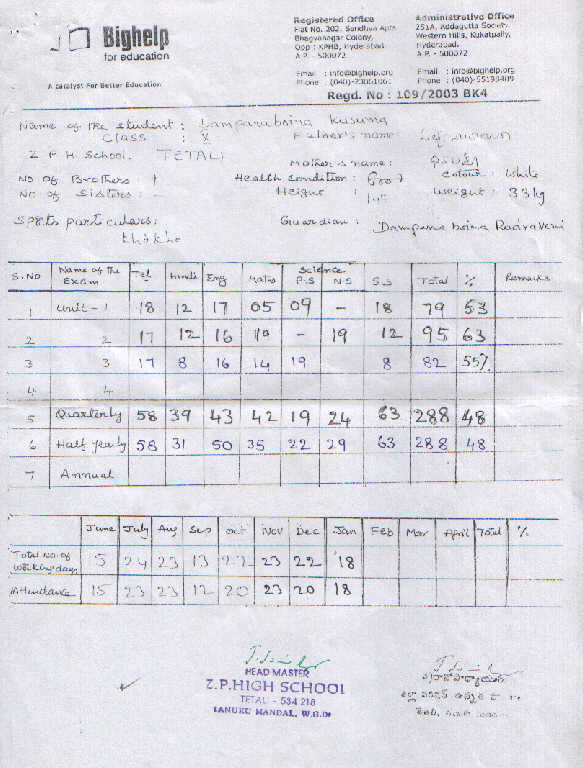 Bighelp
for education
A Catalyst For Better Education
Registered Office
Flat No. 202, Sandhya Apts
Bhagyanagar Colony,
Opp : KPHB, Hyderabad.
A.P. - 500072
Email : info@bighelp.org
Phone : (040)-23051061
Administrative Office
251A, Addagutta Society,
Western Hills, Kukatpally,
Hyderabad.
A.P. - 500072
Email : info@bighelp.org
Phone : (040)-55193409
Regd. No : 109/2003 BK4
Name of the student : Damparaboina Kusuma
Class : X Father's name:
Z P H School. TETALI Mother's name:
No of Brothers 1 Health Condition : Good Colour : White
No of Sisters : - Height : Weight : 33 kg
Sports particulars: Guardian : Dampana boina Radraveni
Khokho
S.NO Name of the Exam Tel Hindi Eng Maths Science P.S N.S S.S Total % Remarks
1 Unit - 1 18 12 17 05 09 - 18 79 53
2 2 17 12 16 19 - 19 12 95 63
3 3 17 8 16 14 19 8 82 55%
4 4
5 Quarterly 58 39 43 42 19 24 63 288 48
6 Half yearly 58 31 50 35 22 29 63 288 48
7 Annual
June July Aug Sep Oct Nov Dec Jan Feb Mar April Total %
Total No. of working days 5 24 23 13 22 23 22 18
Attendance 15 23 23 12 20 23 20 18
HEAD MASTER
Z.P.HIGH SCHOOL
TETALI - 534 218
TANUKU MANDAL, W.G.Dt